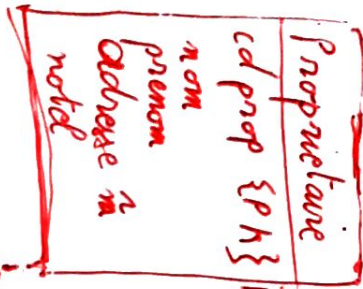 Proprietaire
cd prop {PK}
nom
prenom
adresse m
notel